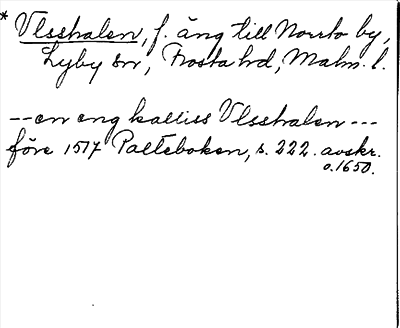 * Vlsshalen, f. äng till Norrto by,
Lyby sn, Frosta hd, Malm. l.
-- en eng kalliss Vlsshalen ---
före 1517 Palteboken, s. 222. avskr.
o. 1650.